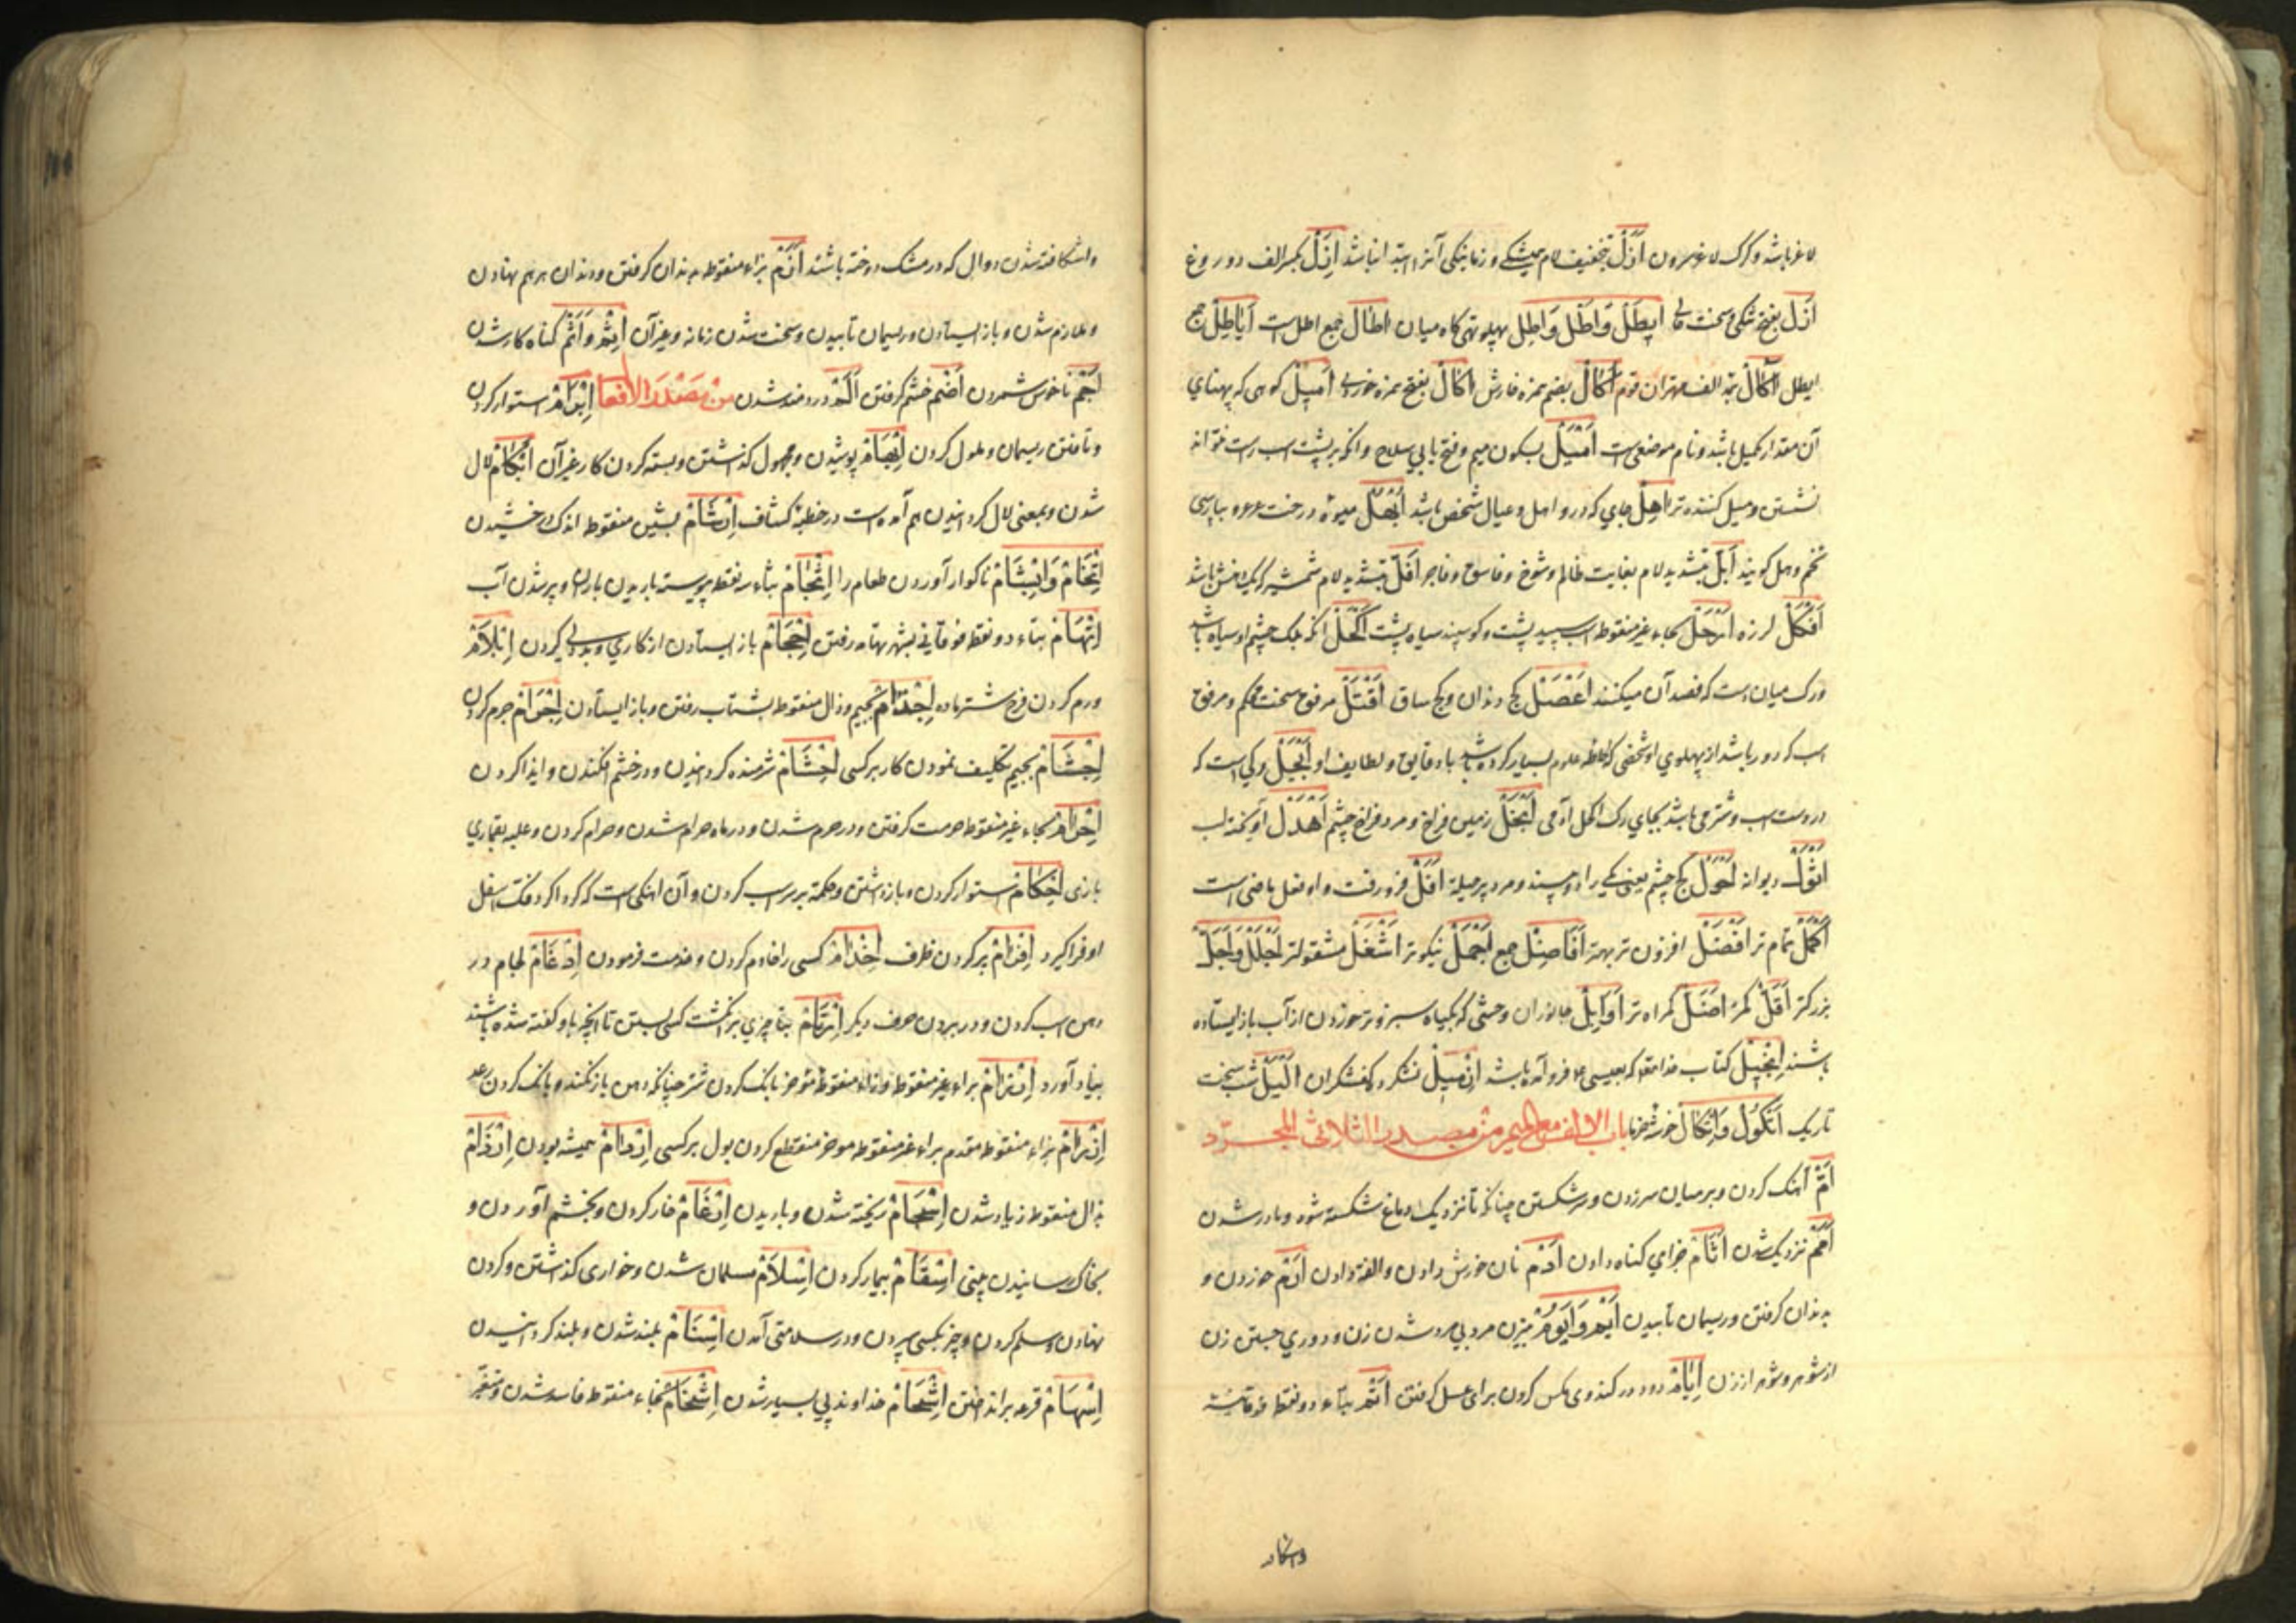 لاغر باشد و گرگ لاغر سرون اَزَلْ بتخفیف لام همیشگی و زمانیکی آنرا ابتدا نباشد اِزْلْ بکسر الف دروغ
اَزْل بفتح تنگی و سخت سالی اَیْطَلْ وَاِطْل وَاِطِل پهلو و تهی کاه میان اٰطٰالْ جمع اطل است اَیَاطِلْ جمع
ایطل آکَالْ بمد الف مهتران قوم اُکَالْ بضم همزه خارش اَکَالْ بفتح همزه خوردنی اَمِیلْ کوهی که پهنای
آن مقدار یکمیل باشد و نام موضعی است اَمْیَلْ بسکون میم و فتح یا بی سلاح و انکه بر پشت اسب راست نتواند
نشستن و میل کننده تر اٰهِلْ جای که درو اهل و عیال شخص باشد اُبْهُلْ میوه درخت عرعر و بپارسی
تخم وهل کویند اَبَلّ بتشدید لام بغایت ظالم و شوخ و فاسق و فاجر اَفَلّ بتشدید لام شمشیر که رخنه باشد
اَفْکَلْ لرزه اَرْحَلْ بحاء غیر منقوطه اسب سپید پشت و کوسپند سیاه پشت اَکْحَلْ انکه پلک چشم او سیاه باشد
ورک میان است که فصد آن میکنند اَعْصَلْ کج دندان و کج ساق اَفْتَلْ مرفق سخت محکم و مرفق
اسب که دور باشد از پهلوی او شخصی که ملاحظه علوم بسیار کرده باشد با دقایق و لطایف او اَبْجَلْ رکی است که
در دست اسب و شتر می باشد بجای رک اکحل آدمی اَنْجَلْ زمین فراخ و مرد فراخ چشم اَهْدَلْ آویخته لب
اَثْوَلْ دیوانه اَحْوَلْ کج چشم یعنی یکی را دو بیند و مرد پر حیله اَفَلْ فرو رفت و او فعل ماضی است
اَکْمَلْ تمام تر اَفْضَلْ افزون تر بهتر اَفَاضِلْ جمع اَجْمَلْ نیکوتر اَشْغَلْ مشغولتر اَجْلَلْ وَاَجَلّ
بزرکتر اَقَلّ کمتر اَضَلّ کمراه تر اَوَابِلْ جانوران وحشی که بکیاه سبز و تر خوردن از آب باز ایستاده
باشند اِنْجِیلْ کتاب خدا تعالی که بعیسی ع م فرو آمده باشد اِزْمِیلْ نشکرد کفشکران اَلْیَلْ شب سخت
تاریک اُثْکُولْ وَاِثْکَالْ خوشه خرما باب الالف مع المیم من مصدر الثلاثی المجرّد
اَمّ آهنک کردن و بر میان سر زدن و سر شکستن چنانکه تا نزدیک دماغ شکسته شود و مادر شدن
اَمَمْ نزدیک شدن اَثَامْ جزای کناه دادن اَدْمْ نان خورش دادن و الفت دادن اَزْمْ خوردن و
بدندان کرفتن و ریسمان تابیدن اَیْمْ وَاُیُومْ بیزن مرد بی مرد شدن زن و دوری جستن زن
از شوهر و شوهر از زن اِیَامْ دود در کندوی مکس کردن برای عسل کرفتن اَتْمْ بتاء دو نقطه فوقانیه
واشکافته
واشکافته شدن دوال که در مشک دوخته باشند اَزْمْ بزاء منقوطه بدندان کرفتن و دندان بر هم نهادن
و ملازم شدن و باز ایستادن و ریسمان تابیدن و سخت شدن زمانه و غیر آن اِثْمْ وَاَثَمْ کناه کار شدن
اَجْمْ ناخوش شمردن اَضَمْ خشم کرفتن اَلَمْ دردمند شدن من مصدر الافعال اِبْرَامْ استوار کردن
و تافتن ریسمان و ملول کردن اِبْهَامْ پوشیدن و مجهول کذاشتن و بسته کردن کار و غیر آن اِبْکَامْ لال
شدن و بمعنی لال کردانیدن هم آمده است در خطبه کشاف اِبْشَامْ بشین منقوطه اندک درخشیدن
اِتْخَامْ وَاِبْشَامْ ناکوار آوردن طعام را اِثْجَامْ بثاء سه نقطه پیوسته باریدن باران و پر شدن آب
اِتْهَامْ بتاء دو نقطه فوقانی بشهر تهامه رفتن اِحْجَامْ باز ایستادن از کاری و بددلی کردن اِبْلَامْ
ورم کردن فرج شتر ماده اِجْذَامْ بجیم و ذال منقوطه بشتاب رفتن و باز ایستادن اِجْرَامْ جرم کردن
اِجْشَامْ بجیم تکلیف نمودن کار بر کسی اِحْشَامْ شرمنده کردانیدن و در خشم افکندن و ایذا کردن
اِحْرَامْ بحاء غیر منقوطه حرمت کرفتن و در حرم شدن و در ماه حرام شدن و حرام کردن و غلبه بقماری
بازی اِحْکَامْ استوار کردن و باز داشتن و حکمه بر سر اسب کردن و آن آهنکی است که کرداکرد فک اسفل
او فرا کیرد اِفْرَامْ پر کردن ظرف اِخْدَامْ کسی را خادم کردن و خدمت فرمودن اِدْغَامْ لجام در
دهن اسب کردن و در بردن حرف دیکر اِرْتَامْ بتا چیزی بر انکشت کسی بستن تا انچه باو کفته شده باشند
بیاد آورد اِرْزَامْ براء غیر منقوطه و زاء منقوطه موخر بانک کردن شتر چنانکه دهن باز نکند و بانک کردن رعد
اِزْرَامْ بزاء منقوطه مقدم براء غیر منقوطه موخر منقطع کردن بول بر کسی اِدْوَامْ همیشه بودن اِرْذَامْ
بذال منقوطه زیاد شدن اِسْجَامْ ریخته شدن و باریدن اِرْغَامْ خار کردن و بخشم آوردن و
بخاک رسانیدن بینی اِسْقَامْ بیمار کردن اِسْلَامْ مسلمان شدن و خواری کذاشتن و کردن
نهادن و سلم کردن و چیز بکسی سپردن و در سلامتی آمدن اِسْنَامْ بلند شدن و بلند کردانیدن
اِسْهَامْ قرعه بر انداختن اِشْحَامْ خداوند پیه بسیار شدن اِشْخَامْ بخاء منقوطه فاسد شدن و متغیر